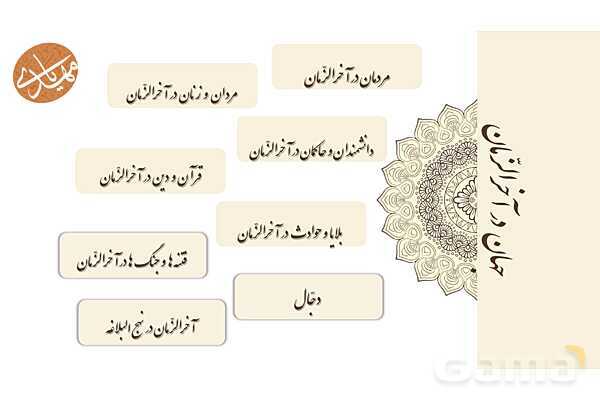 جهان در آخرالزّمان
مردمان در آخرالزّمان
مردان و زنان در آخرالزّمان
دانشمندان و حاکمان در آخرالزّمان
قرآن و دین در آخرالزّمان
بلایا و حوادث در آخرالزّمان
فتنه ها و جنگ ها در آخرالزّمان
دجّال
آخرالزّمان در نهج البلاغه
Gama